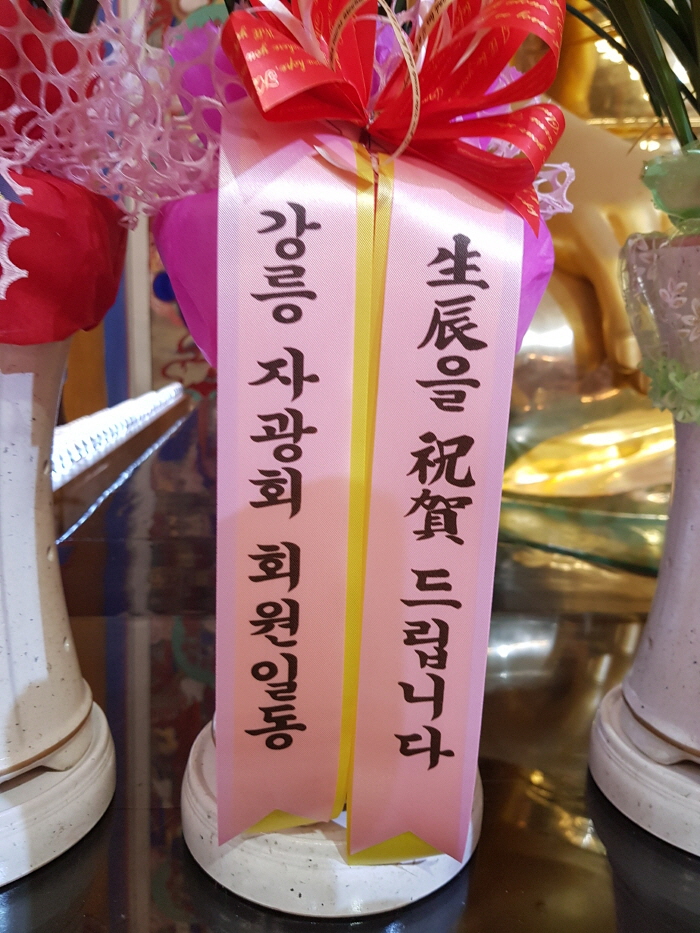 生辰을 祝賀 드립니다
강릉 자광회 회원일동